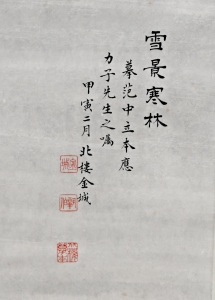 雪景寒林
摹范中立本應
力子先生之嘱
甲寅二月北楼金城